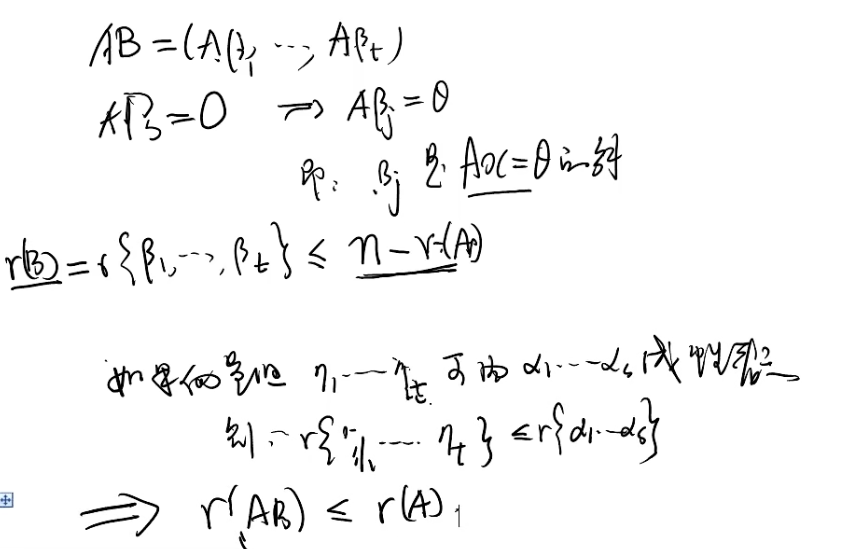 AB = (Aβ₁, ⋯, Aβt)
AB = O ⇒ Aβj = θ
即: βj 是 Ax = θ 的解
r(B) = r{β₁, ⋯, βt} ≤ n − r(A)
如果向量组 η₁ ⋯ ηt 可由 α₁ ⋯ αs 线性
则 r{η₁, ⋯ ηt} ≤ r{α₁ ⋯ αs}
⇒ r(AB) ≤ r(A)